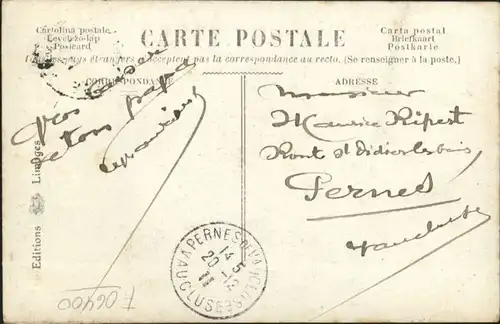 Cartolina postale
Levelező-lap
Postcard
CARTE POSTALE
Carta postal
Briefkaart
Postkarte
Tous les pays étrangers n'acceptent pas la correspondance au recto. (Se renseigner à la poste.)
CORRESPONDANCE
ADRESSE
Gros
de ton papa
Monsieur
Maurice Ripert
Pont st Didier les bains
Pernes
Vaucluse
PERNES
VAUCLUSE
14-5
20-1
12
Editions
Limoges
F06400